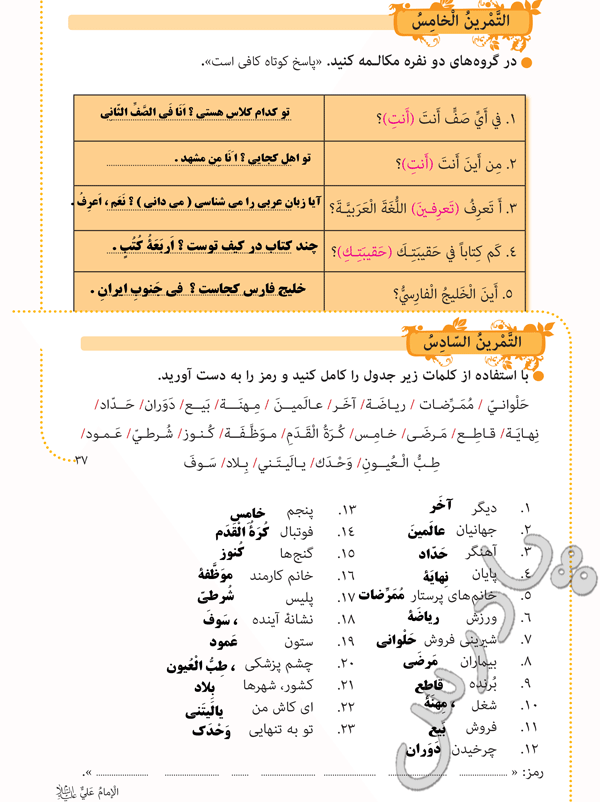 التَّمْرينُ الْخامِسُ
در گروه‌های دو نفره مکالـمه کنید. «پاسخ کوتاه کافی است».
۱. في أَيِّ صَفٍّ أَنتَ (أَنتِ)؟
تو کدام کلاس هستی؟ اَنَا فَی الصَّفِّ الثّانِی
۲. مِن أَينَ أَنتَ (أَنتِ)؟
تو اهل کجایی؟ اَنَا مِن مشهد .
۳. أَ تَعرِفُ (تَعرِفـينَ) اللُّغَةَ الْعَرَبيَّـةَ؟
آیا زبان عربی را می شناسی ( می دانی ) ؟ نَعَم ، اَعرِفُ .
٤. كَم كِتاباً في حَقيبَتِـكَ (حَقيبَتِـكِ)؟
چند کتاب در کیف توست ؟ اَربَعَةُ کُتُبٍ .
۵. أَينَ الْخَليجُ الْفارِسيُّ؟
خلیج فارس کجاست ؟ فی جَنوبِ ایرانِ .
التَّمْرينُ السّادِسُ
با استفاده از کلمات زیر جدول را کامل کنید و رمز را به دست آورید.
حَلْوانيّ / مُمَرِّضات / رياضَة/ آخَر/ عالَميـنَ / مِـهنَــة/ بَيـع/ دَوَران/ حَــدّاد/
نِهايَة/ قاطِـع/ مَرضَى/ خامِـس/ كُرَةُ الْقَدَمِ/ موَظَّـفَـة/ كُـنوز/ شُرطـيّ/ عَـمود/
طِـبُّ الْـعُيــونِ/ وَحْـدَك/ يالَـيتَـني/ بِـلاد/ سَـوفَ
۳۷
۱. دیگر آخَر
۲. جهانیان عالَمینَ
۳. آهنگر حَدّاد
٤. پایان نِهایَة
۵. خانم‌های پرستار مُمَرِّضات
٦. ورزش ریاضَة
۷. شیرینی فروش حَلْوانی
۸. بیماران مَرضَی
۹. بُرنده قاطِع
۱۰. شغل مِهنَة
۱۱. فروش بَیع
۱۲. چرخیدن دَوَران
۱۳. پنجم خامِس
۱٤. فوتبال کُرَةُ الْقَدَمِ
۱۵. گنج‌ها کُنوز
۱٦. خانم کارمند موَظَّفة
۱۷. پلیس شُرطیّ
۱۸. نشانهٔ آینده سَوفَ
۱۹. ستون عَمود
۲۰. چشم پزشکی طِبُّ الْعُیونِ
۲۱. کشور، شهرها بِلاد
۲۲. ای کاش من یالَیتَنی
۲۳. تو به تنهایی وَحْدَک
رمز: « ............ ............ ............ ............ ............ ............ ».
الْإمامُ عَليٌّ
پادرس